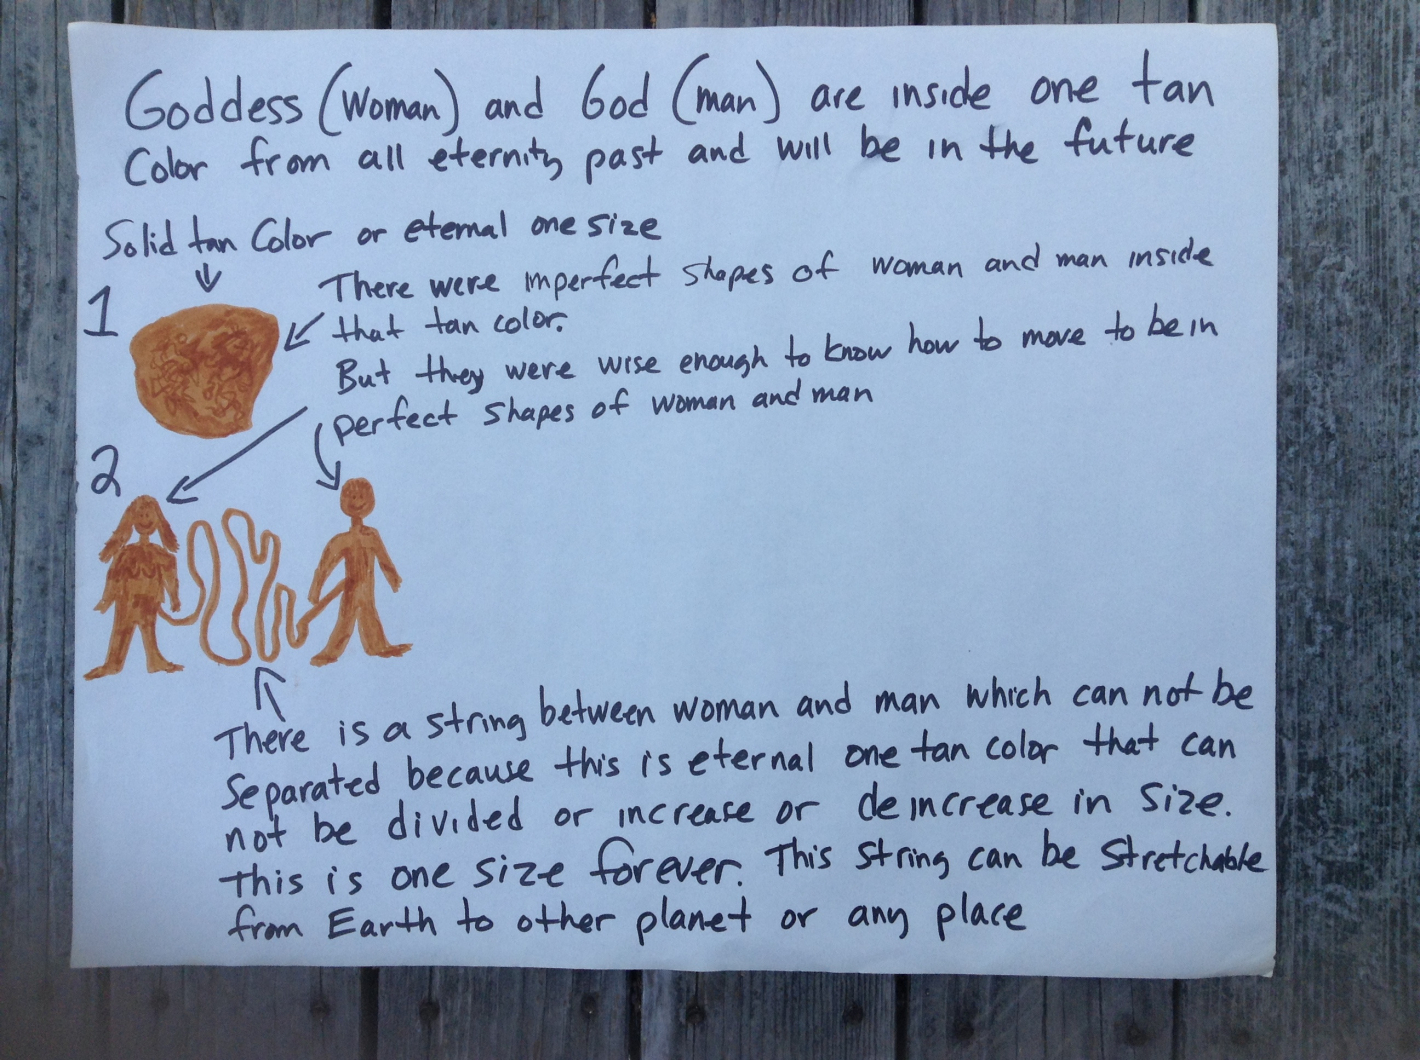 Goddess (Woman) and God (man) are inside one tan
Color from all eternity past and will be in the future
Solid tan Color or eternal one size
1
There were imperfect shapes of woman and man inside
that tan color.
But they were wise enough to know how to move to be in
perfect shapes of woman and man
2
There is a string between woman and man which can not be
Separated because this is eternal one tan color that can
not be divided or increase or deincrease in size.
this is one size forever. This string can be Stretchable
from Earth to other planet or any place